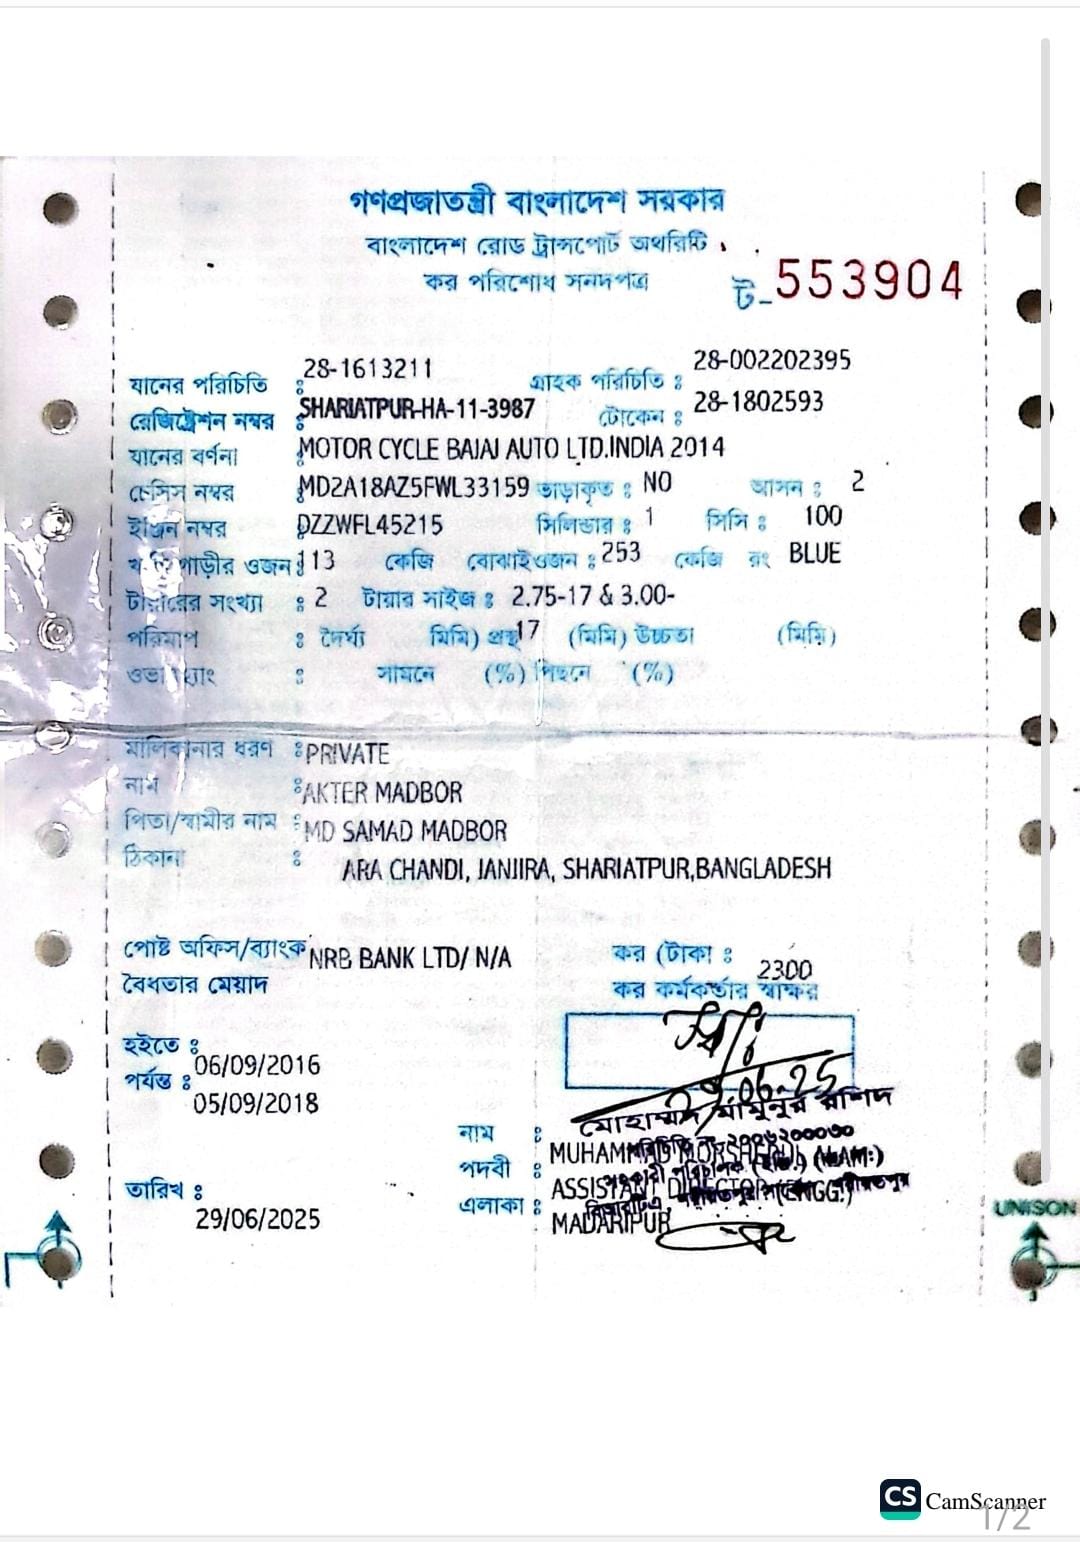 গণপ্রজাতন্ত্রী বাংলাদেশ সরকার
বাংলাদেশ রোড ট্রান্সপোর্ট অথরিটি
কর পরিশোধ সনদপত্র
ট-553904
যানের পরিচিতি : 28-1613211 গ্রাহক পরিচিতি : 28-002202395
রেজিষ্ট্রেশন নম্বর : SHARIATPUR-HA-11-3987 টোকেন : 28-1802593
যানের বর্ণনা : MOTOR CYCLE BAJAJ AUTO LTD.INDIA 2014
চেসিস নম্বর : MD2A18AZ5FWL33159 ভাড়াকৃত : NO আসন : 2
ইঞ্জিন নম্বর : DZZWFL45215 সিলিন্ডার : 1 সিসি : 100
গাড়ীর ওজন : 113 কেজি বোঝাইওজন : 253 কেজি রং BLUE
টায়ারের সংখ্যা : 2 টায়ার সাইজ : 2.75-17 & 3.00-
পরিমাপ : দৈর্ঘ্য মিমি) প্রস্থ 17 (মিমি) উচ্চতা (মিমি)
: সামনে (%) পিছনে (%)
মালিকানার ধরণ : PRIVATE
নাম : AKTER MADBOR
পিতা/স্বামীর নাম : MD SAMAD MADBOR
ঠিকানা :
ARA CHANDI, JANJIRA, SHARIATPUR,BANGLADESH
পোষ্ট অফিস/ব্যাংক NRB BANK LTD/ N/A কর (টাকা : 2300
বৈধতার মেয়াদ কর কর্মকর্তার স্বাক্ষর
হইতে : 06/09/2016
পর্যন্ত : 05/09/2018
06-25
মোহাম্মদ মামুনুর রশিদ
নাম : MUHAMMAD MORSHEDUL
পদবী : ASSISTANT DIRECTOR (ENGG.)
তারিখ : 29/06/2025
এলাকা : MADARIPUR
UNISON
CS CamScanner
1/2